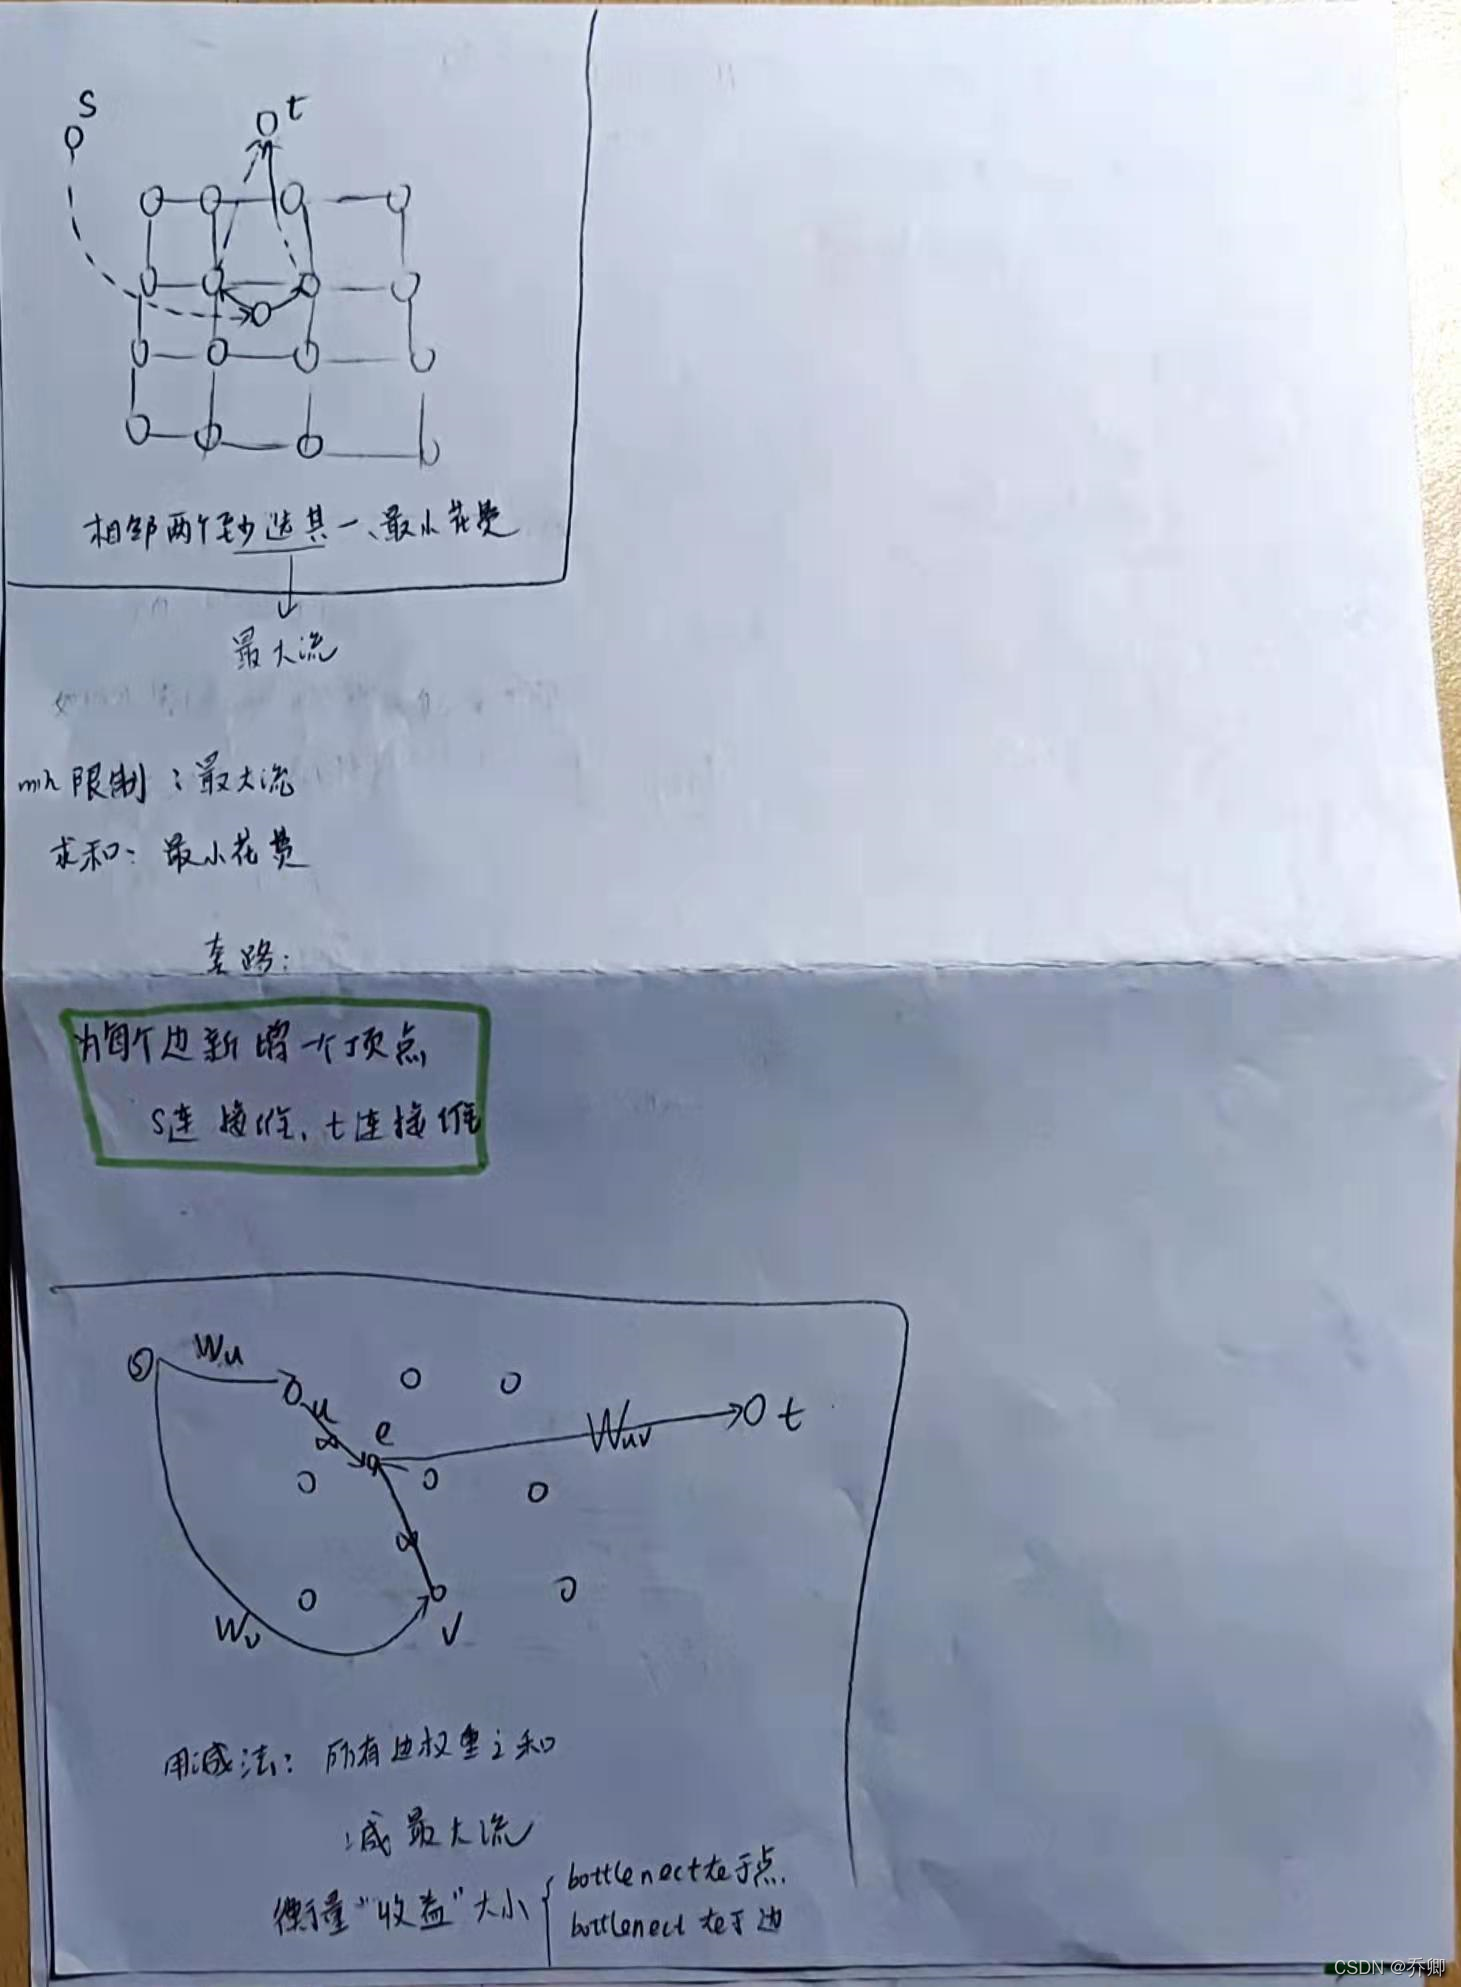 S
t
相邻两个至少选其一、最小花费
最大流
min限制:最大流
求和:最小花费
套路:
为每个边新增一个顶点
S连接谁、t连接谁
S
Wu
u
∞
e
Wuv
t
∞
Wv
V
用减法:所有边权重之和
减最大流
衡量“收益”大小
bottlenect在于点
bottlenect在于边
CSDN @乔卿